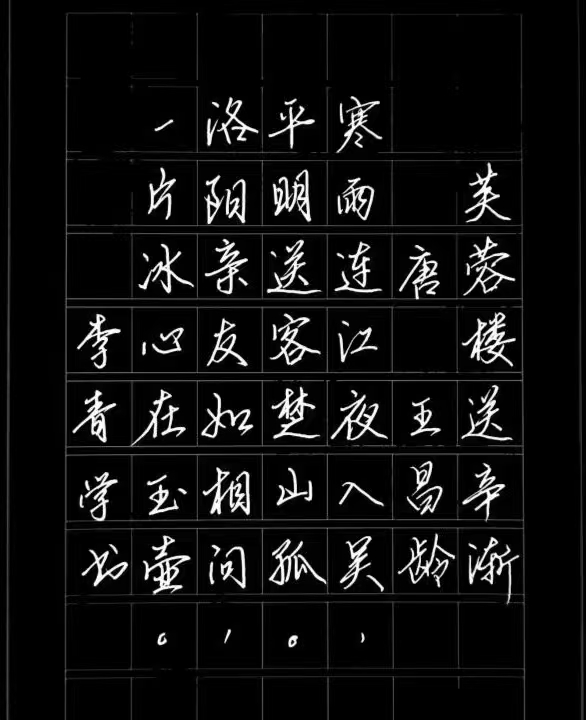 芙蓉楼送辛渐
唐 王昌龄
寒雨连江夜入吴，
平明送客楚山孤。
洛阳亲友如相问，
一片冰心在玉壶。
李青学书